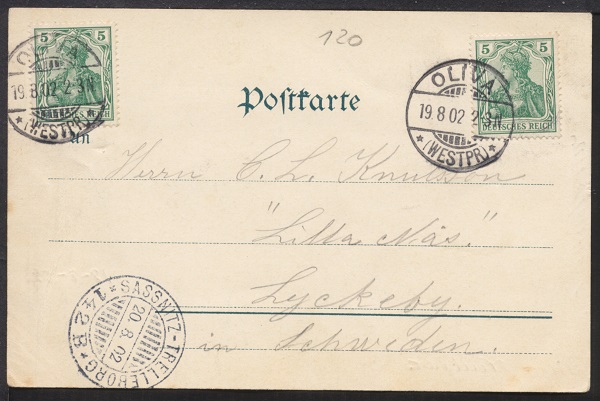 5 5
OLIVA
19.8.02 2-3N
*(WESTPR)*
120
5 5
DEUTSCHES REICH
OLIVA
19.8.02 2-3N
*(WESTPR)*
Postkarte
An
Herrn C. L. Knutsson
"Lilla Näs."
Lyckeby.
in Schweden.
SASSNITZ-TRELLEBORG
20.8.02
*142B*